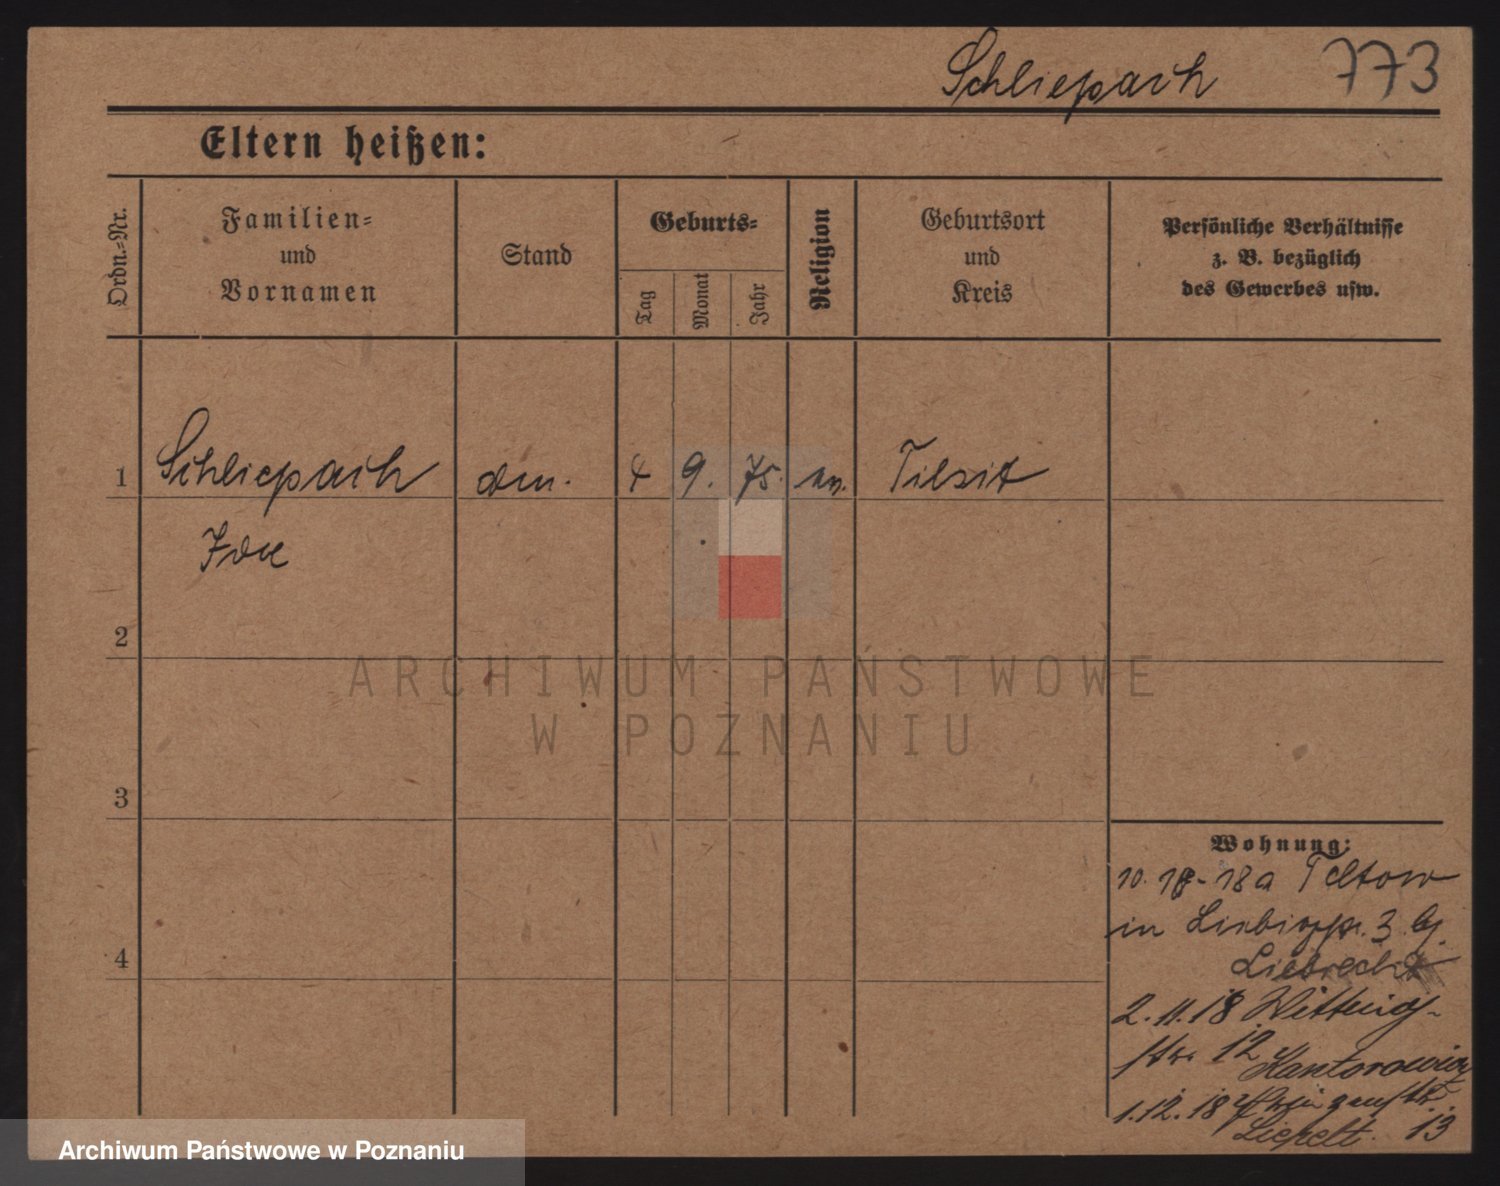 Schliepach 773
Eltern heißen:
Ordn.=Nr.
Familien=
und
Vornamen
Stand
Geburts=
Tag
Monat
Jahr
Religion
Geburtsort
und
Kreis
Persönliche Verhältnisse
z. B. bezüglich
des Gewerbes usw.
1 Schliepach 4 9. 75. Tilsit
2
3
4
ARCHIWUM PAŃSTWOWE
W POZNANIU
Wohnung:
18a Teltow
in 3 bj.
Liebrecht
2.11.18 Wittwig-
str. 12 Kantorowicz
1.12.18
13
Archiwum Państwowe w Poznaniu